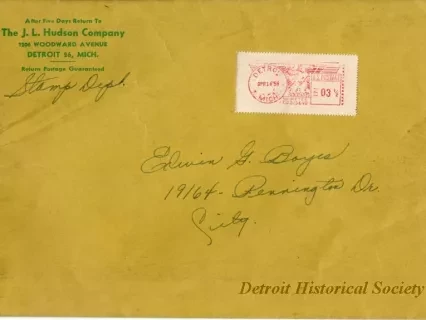 After Five Days Return To
The J. L. Hudson Company
1206 WOODWARD AVENUE
DETROIT 26, MICH.
Return Postage Guaranteed
Stamp Dept.
DETROIT
MICH
03
Edwin G. Boyes
19164 - Pennington Dr.
City.
Detroit Historical Society